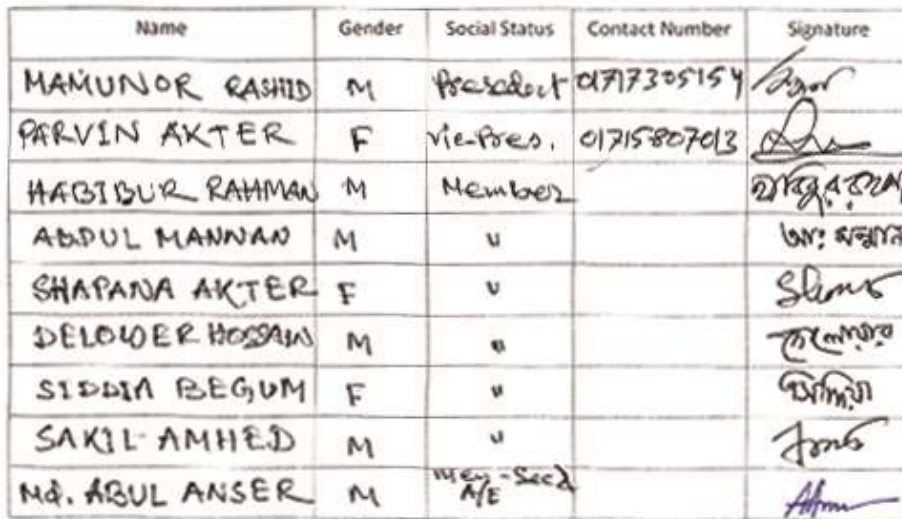 Name Gender Social Status Contact Number Signature
MAMUNOR RASHID M Presedect 01717305154
PARVIN AKTER F Vie-Pres. 01715807013
HABIBUR RAHMAN M Member
ABDUL MANNAN M " আঃ মন্নান
SHAPANA AKTER F "
DELOWER HOSSAIN M " দেলোয়ার
SIDDIA BEGUM F " ছিদ্দিয়া
SAKIL AMHED M "
Md. ABUL ANSER M A/E